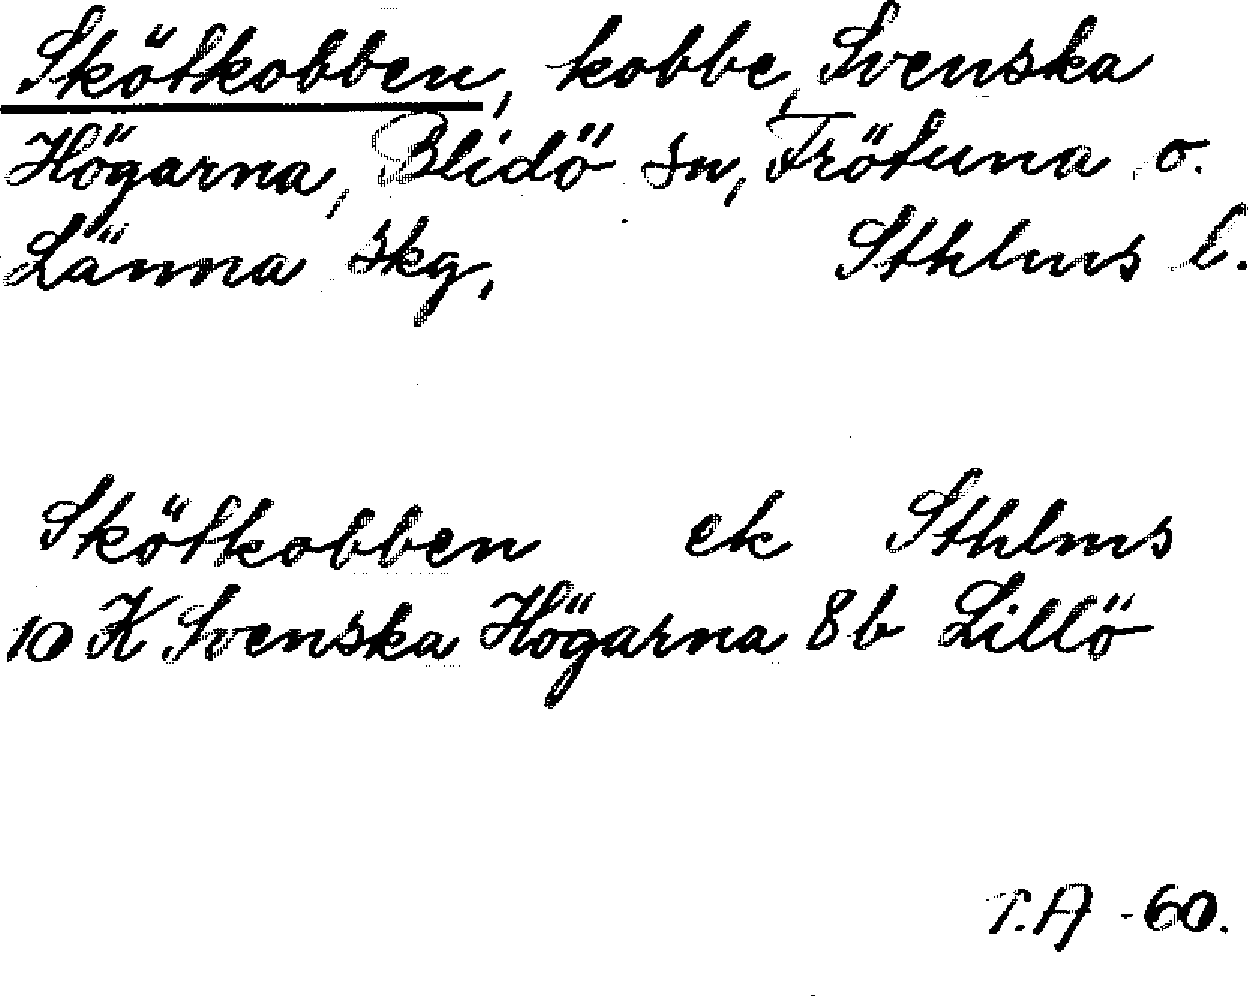 Skötkobben, kobbe, Svenska
Högarna, Blidö sn, Frötuna o.
Länna skg, Sthlms l.
Skötkobben ek Sthlms
10 K Svenska Högarna 8b Lillö
T.A -60.